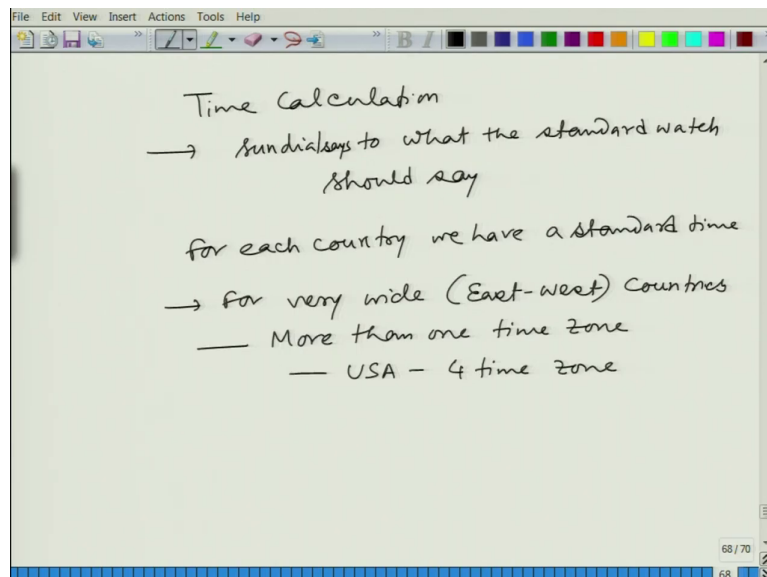 File Edit View Insert Actions Tools Help
Time Calculation
→ sundial says to what the standard watch
should say
for each country we have a standard time
→ for very wide (East-west) Countries
— More than one time zone
— USA - 4 time zone
68 / 70
68